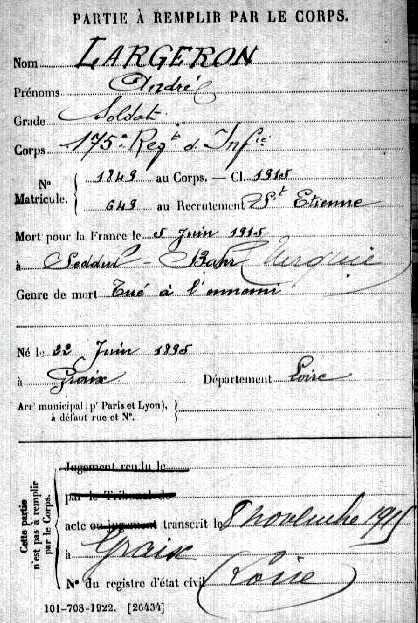 PARTIE À REMPLIR PAR LE CORPS.
Nom LARGERON
Prénoms André
Grade Soldat
Corps 175e Regt d'Infie
N° Matricule. { 1849 au Corps. — Cl. 1915
649 au Recrutement St Etienne
Mort pour la France le 5 Juin 1915
à Seddul-Bahr (Turquie)
Genre de mort Tué à l'ennemi
Né le 22 Juin 1895
à Graix Département Loire
Arrt municipal (pr Paris et Lyon), à défaut rue et N°. {
Cette partie n'est pas à remplir par le Corps. {
Jugement rendu le
par le Tribunal de
acte ou jugement transcrit le 8 novembre 1915
à Graix
N° du registre d'état civil (Loire)
101-708-1922. [26434]